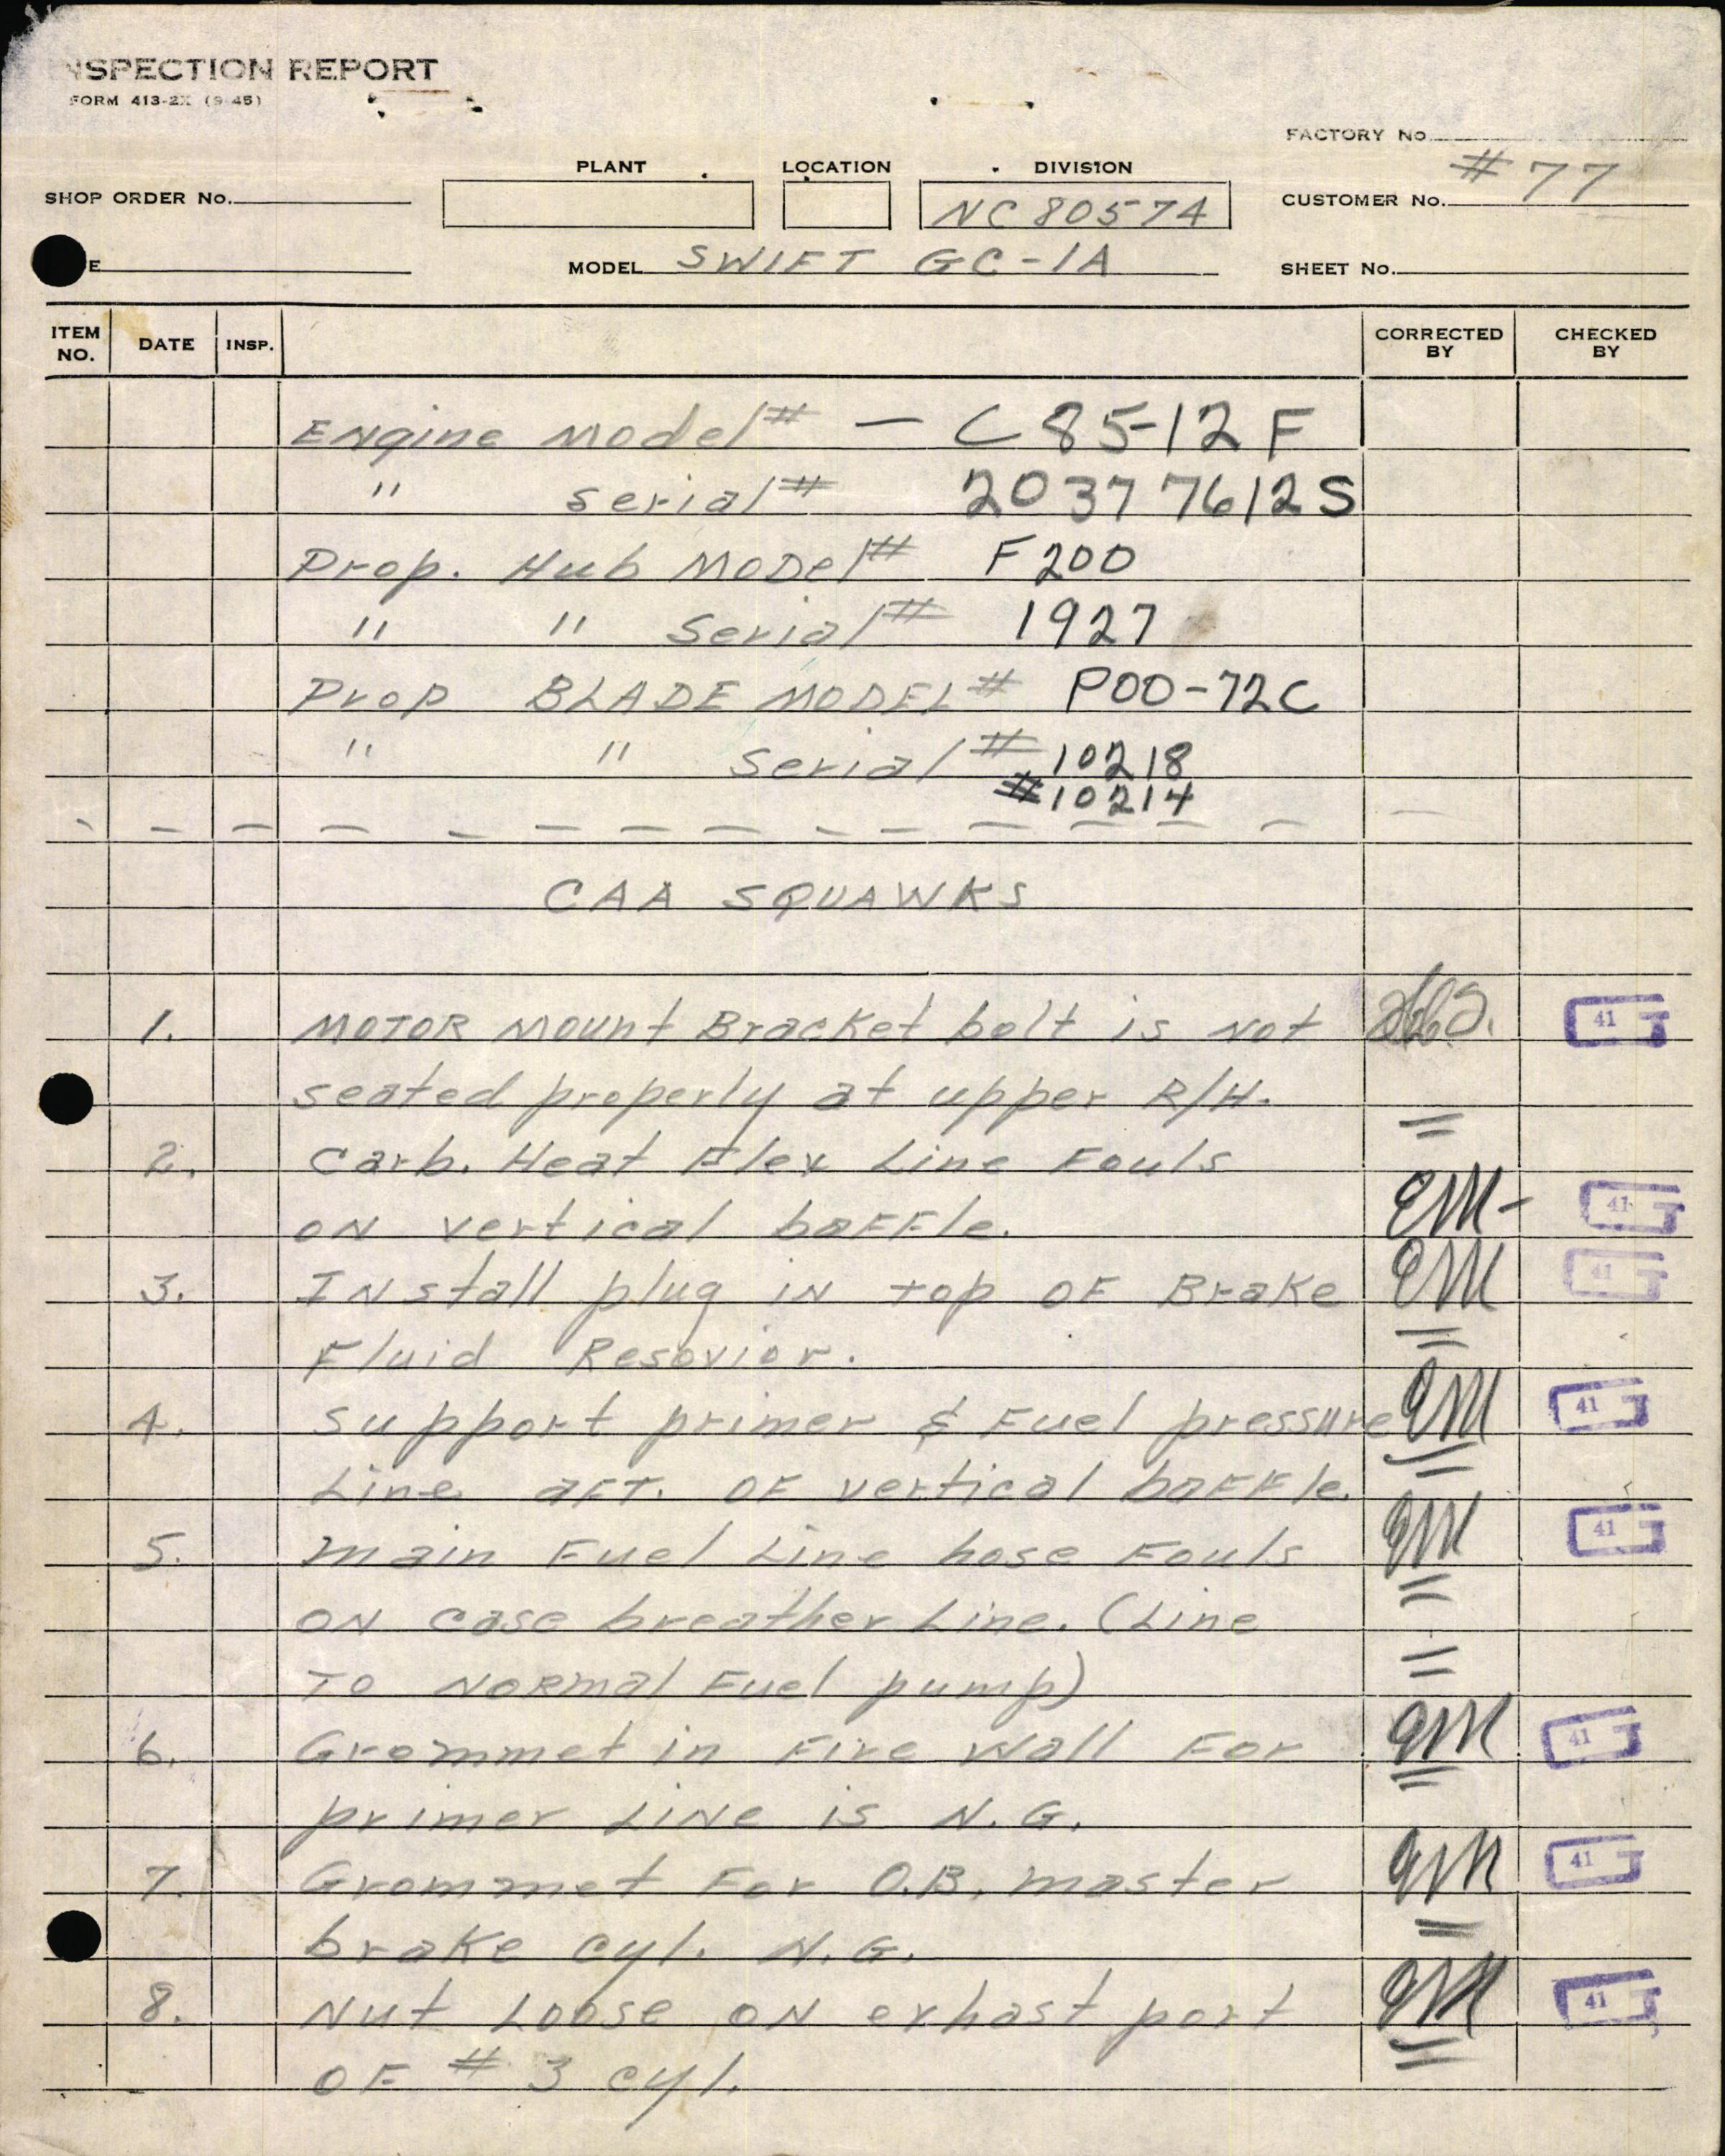 NSPECTION REPORT
FORM 413-2X (9-45)
FACTORY No.
PLANT LOCATION DIVISION
SHOP ORDER No. NC80574 CUSTOMER No. #77
E MODEL SWIFT GC-1A SHEET No.
ITEM NO. DATE INSP. CORRECTED BY CHECKED BY
Engine Model# — C85-12F
" serial# 20377612S
Prop. Hub Model# F200
" " Serial# 1927
Prop BLADE MODEL# P00-72C
" " Serial# 10218
#10214
CAA SQUAWKS
1. MOTOR Mount Bracket bolt is not 41
seated properly at upper R/H.
2. Carb. Heat Flex Line Fouls
on vertical baffle. 41
3. Install plug in top of Brake 41
Fluid Resovior.
4. Support primer & Fuel pressure 41
Line aft. of vertical baffle.
5. Main Fuel Line hose Fouls 41
on case breather Line. (Line
To Normal Fuel pump)
6. Grommet in Fire wall For 41
primer Line is N.G.
7. Grommet For O.B. master 41
brake cyl. N.G.
8. Nut Loose on exhast port 41
of #3 cyl.